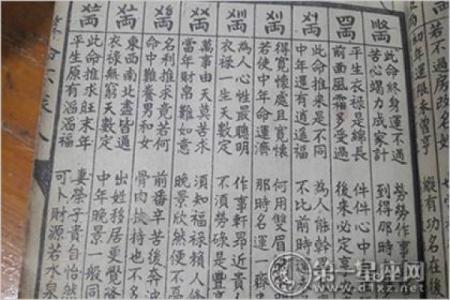 若不過房改名姓
初年運限未曾亨 縱有功名在後
両
此命終身運不通 勞勞作事
苦心竭力成家計 到得那時
四両
平生衣祿是綿長 件件心中
前面風霜多受過 後來必定享
両
此命推來是不同 為人能幹
中年還有逍遙福 不比前時
両
得寬懷處且寬懷 何用雙眉
若使中年命運濟 那時名運一齊
両
為人心性最聰明 作事軒昂近貴
衣祿一生天數定 不須勞碌是豐
両
萬事由天莫苦求 須知福祿賴人
當年財帛難如意 晚景欣然便不
両
名利推求竟若何 前番辛苦後奔
命中難養男和女 骨肉扶持也不
両
東西南北盡皆通 出姓移居更覺
衣祿無窮天數定 中年晚景一般同
両
此命推求旺末年 妻榮子貴自怡然
平生原有滔滔福 可卜財源若水泉
第一星座网
www.d1xz.net